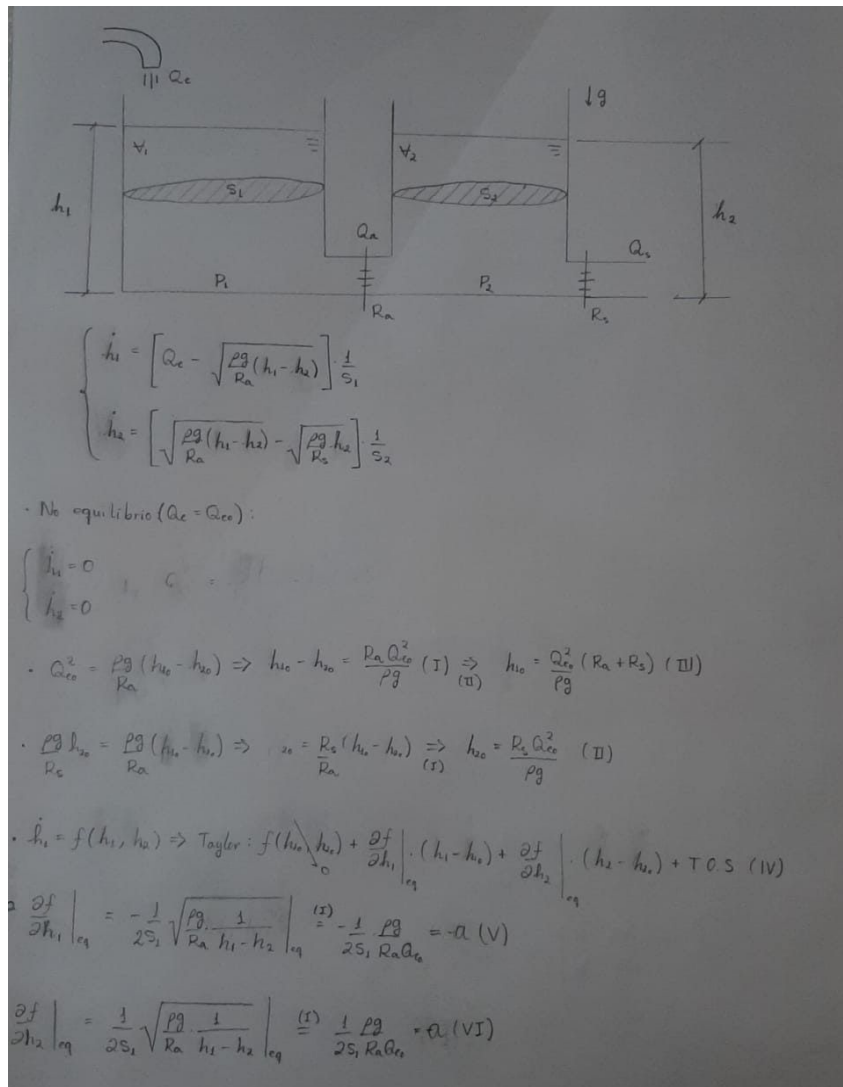 Qe
↓g
∀₁ ∀₂
S₁
h₁ h₂
Qa Qs
P₁ P₂
Ra Rs
{ ḣ₁ = [Qe - √(ρg/Ra (h₁ - h₂))] · 1/S₁
ḣ₂ = [√(ρg/Ra (h₁ - h₂)) - √(ρg/Rs h₂)] · 1/S₂
· No equilíbrio (Qe = Qeo):
{ ḣ₁ = 0
ḣ₂ = 0
· Qeo² = ρg/Ra (h₁₀ - h₂₀) => h₁₀ - h₂₀ = Ra Qeo²/ρg (I) =>(II) h₁₀ = Qeo²/ρg (Ra + Rs) (III)
· ρg/Rs h₂₀ = ρg/Ra (h₁₀ - h₂₀) => ₂₀ = Rs/Ra (h₁₀ - h₂₀) =>(I) h₂₀ = Rs Qeo²/ρg (II)
· ḣ₁ = f(h₁, h₂) => Tayler: f(h₁₀, h₂₀) → 0 + ∂f/∂h₁|eq · (h₁ - h₁₀) + ∂f/∂h₂|eq · (h₂ - h₂₀) + T.O.S (IV)
∂f/∂h₁|eq = -1/2S₁ √(ρg/Ra · 1/(h₁ - h₂))|eq =(I) -1/2S₁ ρg/RaQeo = -a (V)
∂f/∂h₂|eq = 1/2S₁ √(ρg/Ra · 1/(h₁ - h₂))|eq =(I) 1/2S₁ ρg/RaQeo = a (VI)